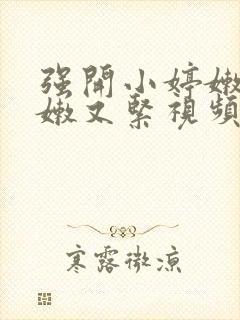 强開小婷嫩
嫩又緊視頻
寒露微涼